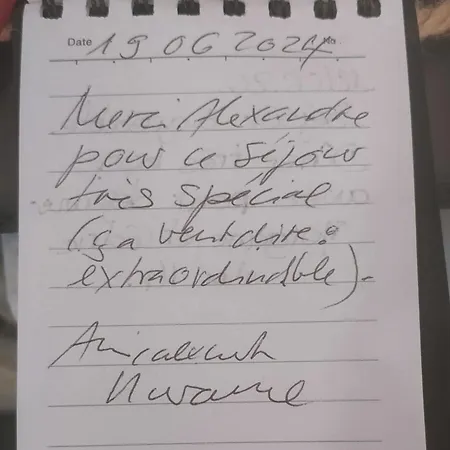 Date 19 06 2024 No.
Merci Alexandre
pour ce séjour
très spécial
(ça veut dire :
).
Amicalement